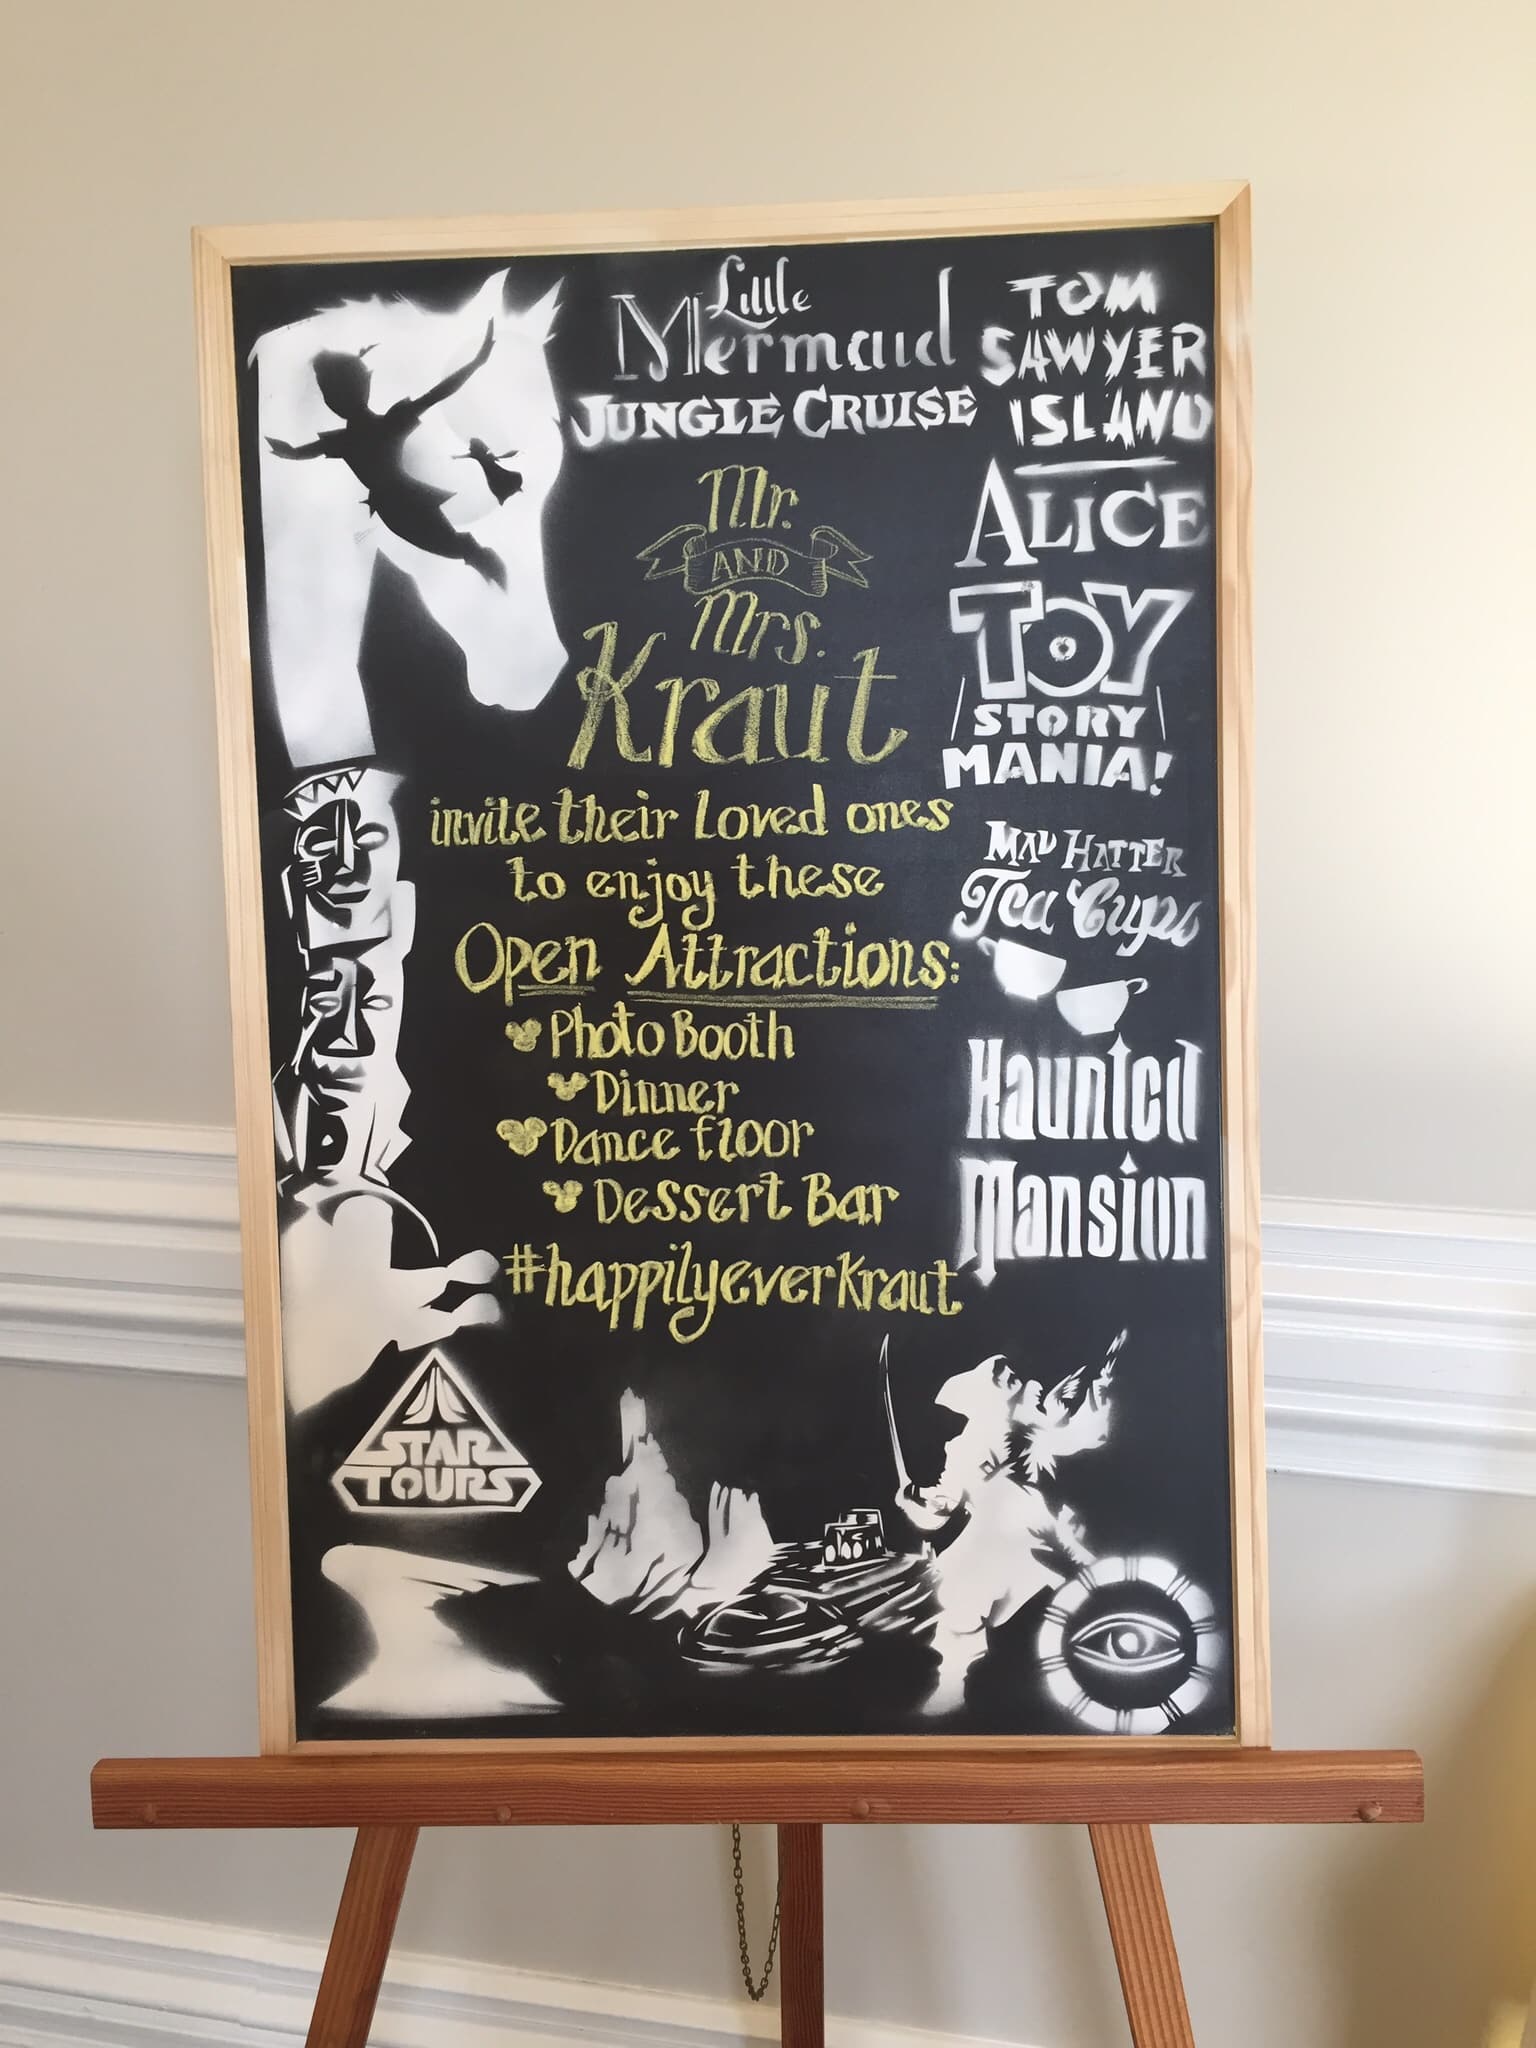 Little
Mermaid
JUNGLE CRUISE
TOM
SAWYER
ISLAND
ALICE
TOY
STORY
MANIA!
MAD HATTER
Tea Cups
Haunted
Mansion
Mr.
AND
Mrs.
Kraut
invite their loved ones
to enjoy these
Open Attractions:
Photo Booth
Dinner
Dance floor
Dessert Bar
#happilyeverkraut
STAR
TOURS